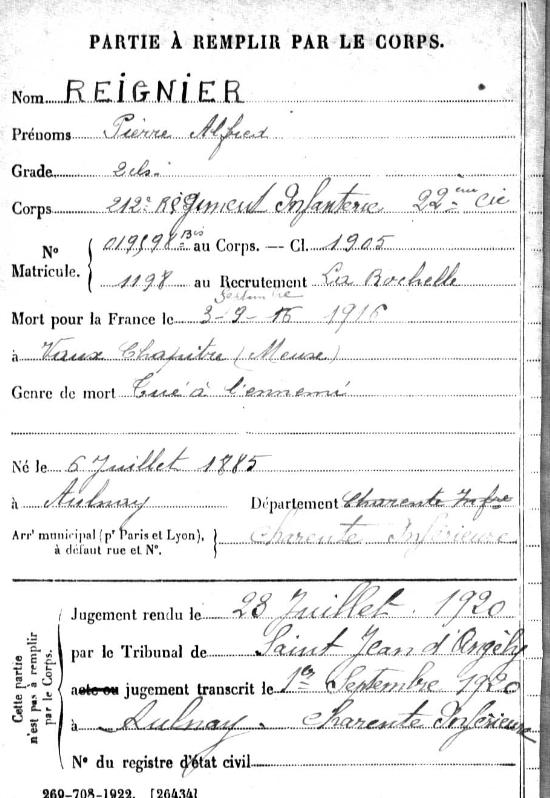 PARTIE À REMPLIR PAR LE CORPS.
Nom REIGNIER
Prénoms Pierre Alfred
Grade 2 cls.
Corps 212e Régiment Infanterie 22ème Cie
No Matricule. 019598 Bis au Corps. — Cl. 1905
1198 au Recrutement La Rochelle
Septembre
Mort pour la France le 3-9-16 1916
à Vaux Chapitre (Meuse)
Genre de mort Tué à l'ennemi
Né le 6 Juillet 1885
à Aulnay Département Charente Infre
Arrt municipal (pr Paris et Lyon), à défaut rue et No. Charente Inférieure
Cette partie n'est pas à remplir par le Corps.
Jugement rendu le 23 Juillet. 1920
par le Tribunal de Saint Jean d'Angély
acte ou jugement transcrit le 1er Septembre 1920
à Aulnay. Charente Inférieure
No du registre d'état civil
269-708-1922. [26434]